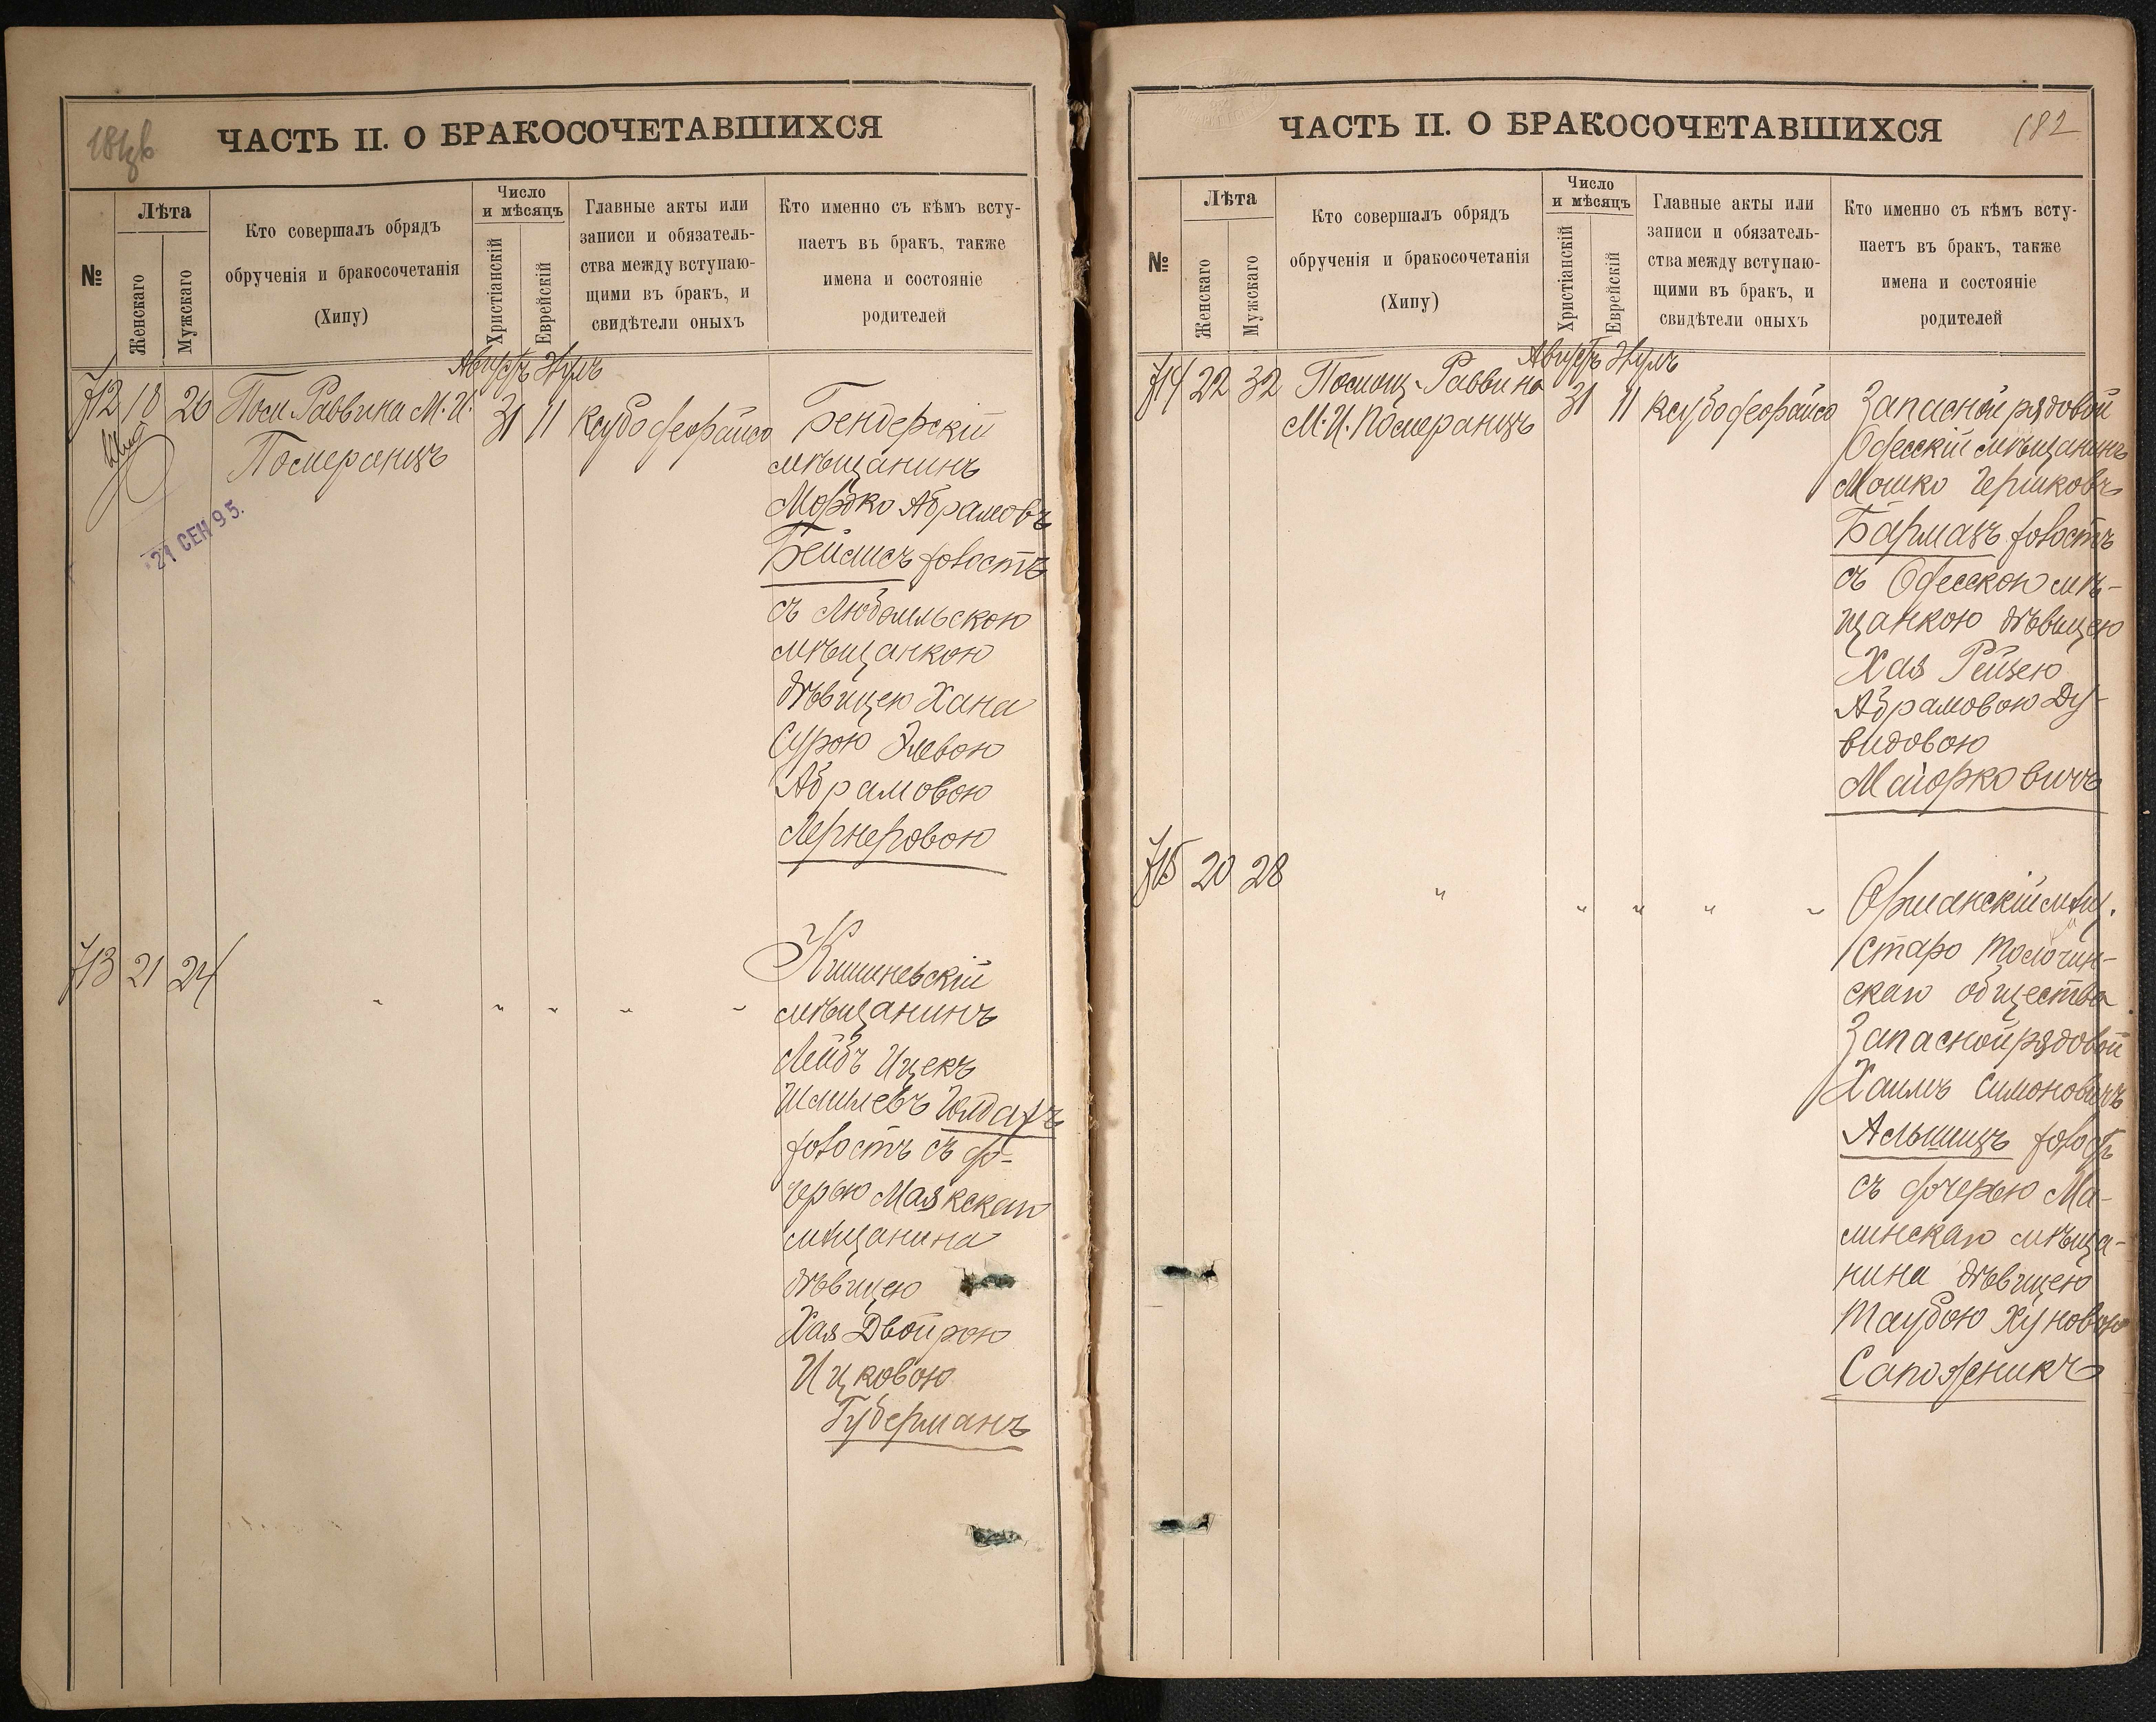 181 об
ЧАСТЬ II. О БРАКОСОЧЕТАВШИХСЯ
№
Лѣта
Женскаго
Мужскаго
Кто совершалъ обрядъ
обрученія и бракосочетанія
(Хипу)
Число
и мѣсяцъ
Христіанскій
Еврейскій
Главные акты или
записи и обязатель-
ства между вступаю-
щими въ бракъ, и
свидѣтели оныхъ
Кто именно съ кѣмъ всту-
паетъ въ бракъ, также
имена и состояніе
родителей
Августъ Элулъ
712 18 20 Пом. Раввина М. И. 31 11
Померанцъ
21 СЕН 95.
Бендерскій
мѣщанинъ
Мордко Абрамовъ
Беймисъ холостъ
съ Любомльскою
мѣщанкою
дѣвицею Хана
Сурою Элевою
Абрамовою
Лернеровою
713 21 24 " " " " "
Кишиневскій
мѣщанинъ
Лейбъ Ицекъ
Шмилевъ
холостъ съ до-
черью Маякскаго
мѣщанина
дѣвицею
Хая Двойрою
Ицковою
Губерманъ
182
ЧАСТЬ II. О БРАКОСОЧЕТАВШИХСЯ
№
Лѣта
Женскаго
Мужскаго
Кто совершалъ обрядъ
обрученія и бракосочетанія
(Хипу)
Число
и мѣсяцъ
Христіанскій
Еврейскій
Главные акты или
записи и обязатель-
ства между вступаю-
щими въ бракъ, и
свидѣтели оныхъ
Кто именно съ кѣмъ всту-
паетъ въ бракъ, также
имена и состояніе
родителей
Августъ Элулъ
714 22 32 Помощ. Раввина 31 11
М. И. Померанцъ
Запасной рядовой
Одесскій мѣщанинъ
Мошко Гершковъ
холостъ
съ Одесскою мѣ-
щанкою дѣвицею
Хая Рейзею
Абрамовою Ду-
видовою
Маіорковичъ
715 20 28 " " " " "
Оршанскій мѣщ.
Старо Толочин-
скаго общества
Запасной рядовой
Хаимъ Симоновичъ
холостъ
съ дочерью Ма-
линскаго мѣща-
нина дѣвицею
Таубою Хуновою
Сапожникъ